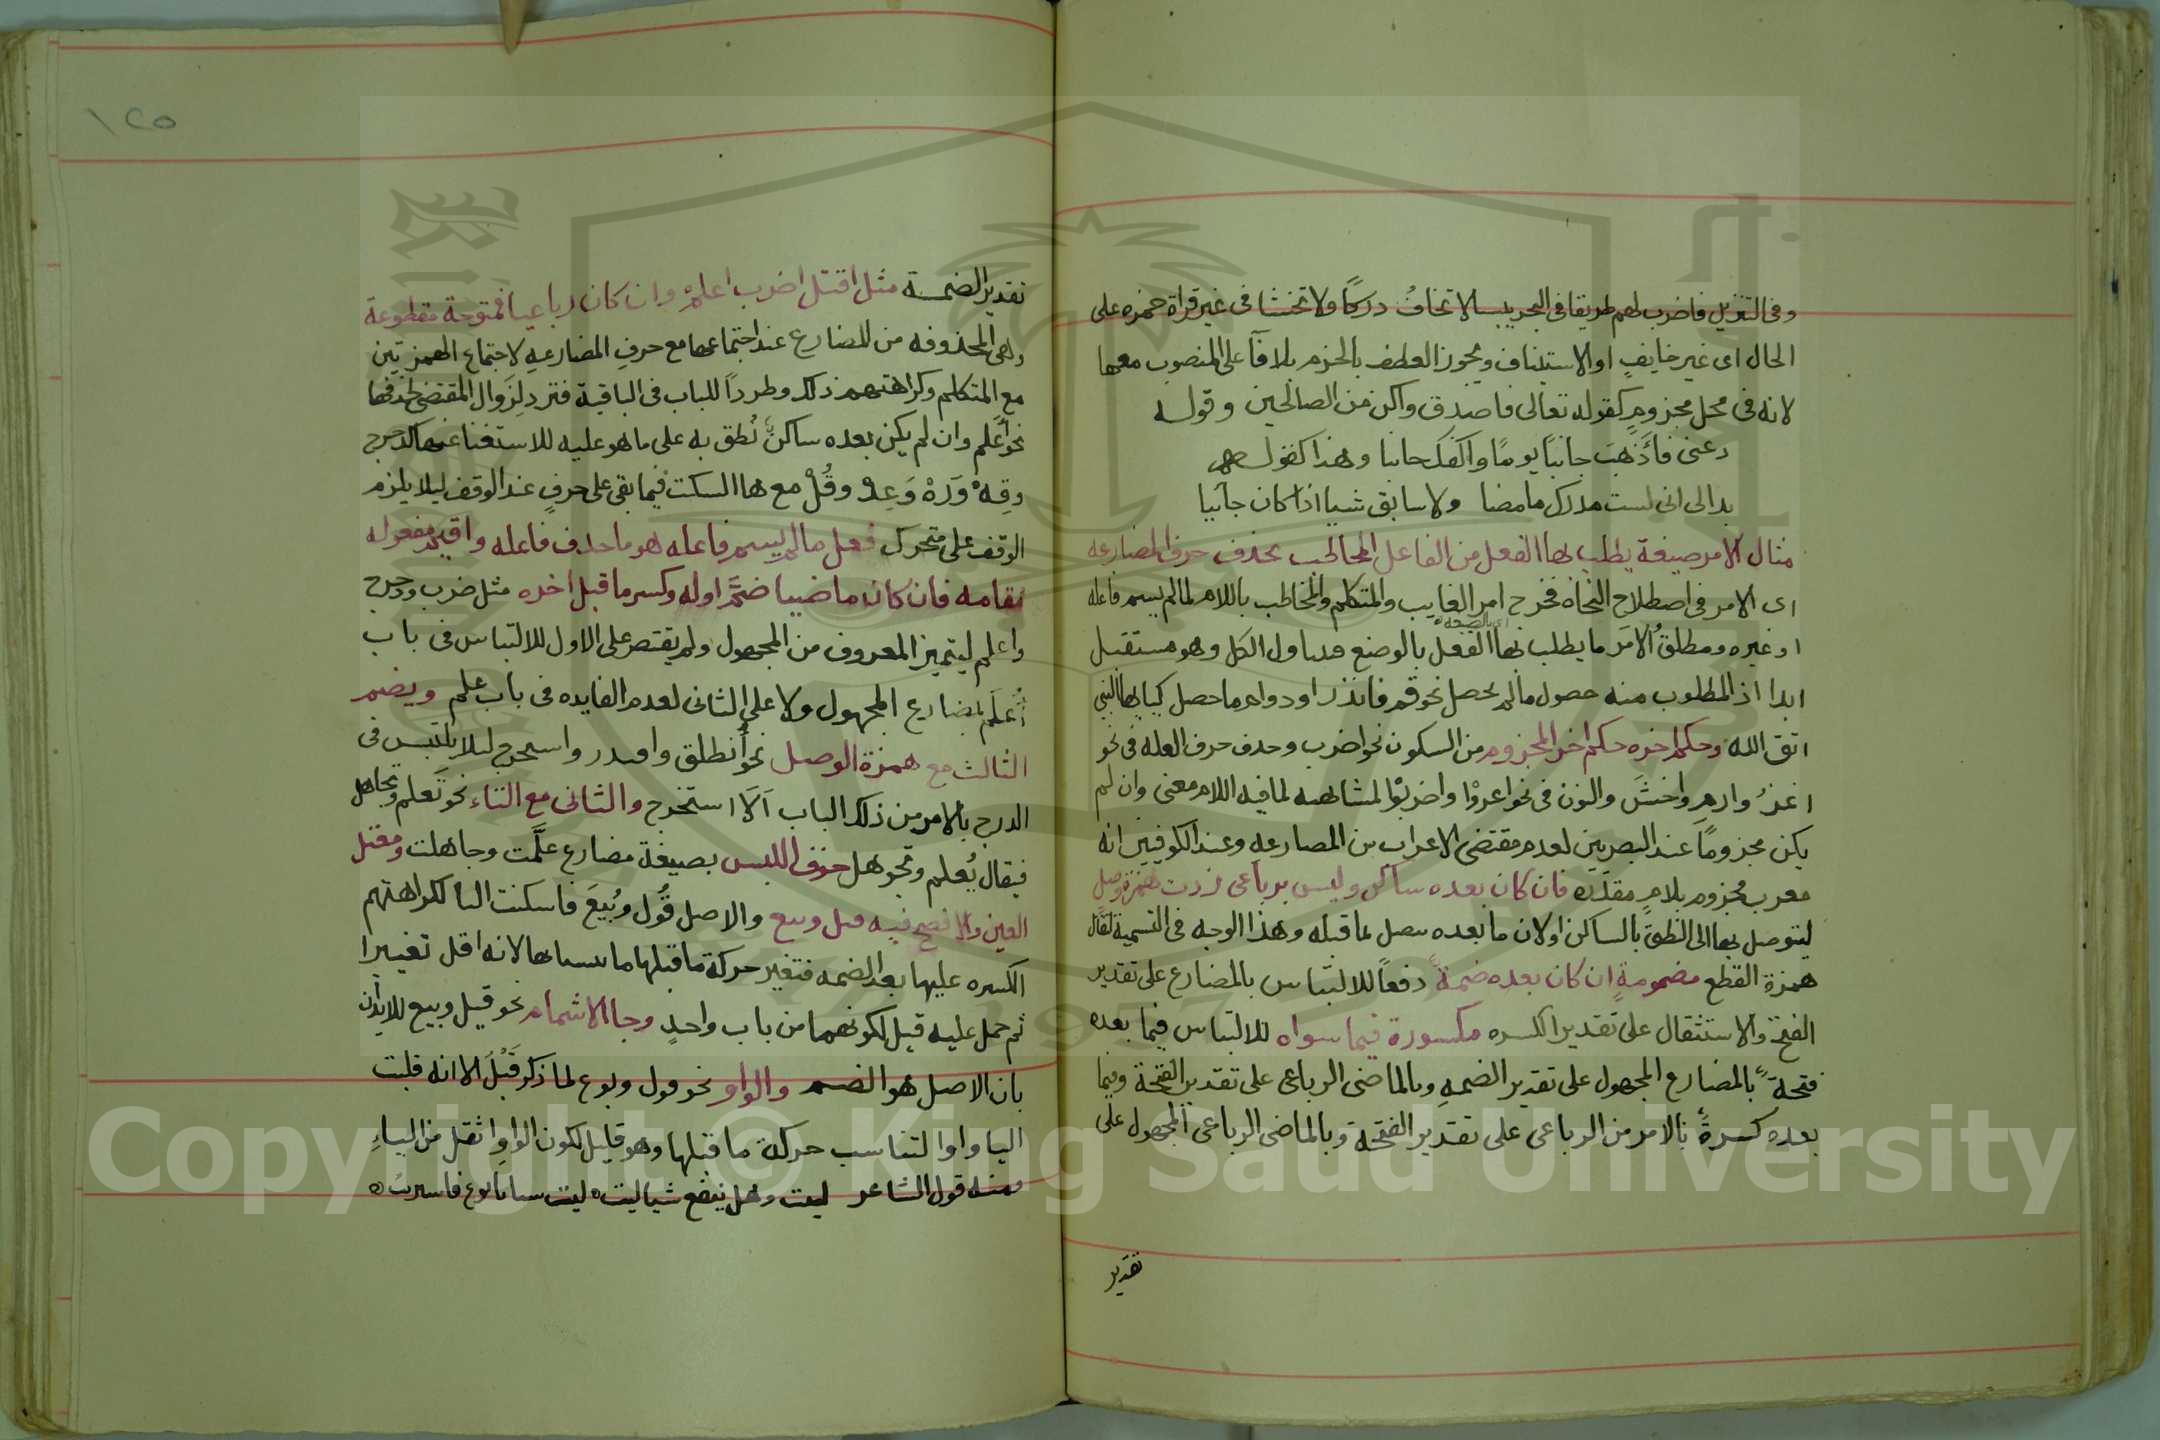 وفى التنزيل فاضرب لهم طريقا فى البحر يبسا لا تخافُ دركًا ولا تخشا فى غير قراة حمزه على
الحال اى غير خايفٍ او الاستيناف ويجوز العطف بالجزم بلا فآ على المنصوب معها
لانه فى محل مجزومٍ كقوله تعالى فاصدق واكن من الصالحين وقوله
دعنى فأذهبَ جانبًا يومًا واكفك جانبا وهذا كقوله
بدا لى انى لست مدرك ما مضا ولا سابق شيا اذا كان جآئيا
مثال الامر صيغة يطلب بها الفعل من الفاعل المخاطب بحذف حرف المضارعه
اى الامر فى اصطلاح النحاه فخرج امر الغايب والمتكلم والمخاطب باللام لما لم يسم فاعله
او غيره ومطلقُ الامَر ما يطلب بها الفعل بالوضع الكل وهو مستقبل
اى بالصيغه
ابدا اذ المطلوب منه حصول ما لم يحصل نحو قم فانذر او دوام ما حصل كيا ايها النبي
اتق الله وحكم اخره حكم اخر المجزوم من السكون نحو اضرب وحذف حرف العله فى نحو
اغزُ وارمِ واخشَ والنون فى نحو اغزوْا واضربوْا لمشابهته لما فيه اللام معنى وان لم
يكن مجزومًا عند البصريين لعدم مقتضى الاعراب من المضارعه وعند الكوفيين انه
معرب مجزوم بلامٍ مقدَّره فان كان بعده ساكن وليس برباعى زدت همزة وصلٍ
ليتوصل بها الى النطق بالساكن او لان ما بعده يتصل بما قبله وهذا الوجه فى التسمية لقال
همزة القطع مضمومةٍ ان كان بعده ضمةً دفعاً للالتباس بالمضارع على تقدير
الفتح والاستثقال على تقدير الكسره مكسورة فيما سواه للالتباس فيما بعده
فتحة بالمضارع المجهول على تقدير الضمه وبالماضى الرباعى على تقدير الفتحة وفيما
بعده كسرةً بالامر من الرباعى على تقدير الفتحة وبالماضى الرباعى المجهول على
تقدير
١٢٥
تقدير الضمة مثل اقتل اضرب اعلمْ وان كان رباعيا فمفتوحة مقطوعة
وهى المحذوفه من المضارع عند اجتماعها مع حرف المضارعه لاجتماع الهمزتين
مع المتكلم وكراهتهم ذلك وطرداً للباب فى الباقية فترد لزوال المقتضى لحذفها
نحو أَعلم وان لم يكن بعده ساكنٌ نُطق به على ما هو عليه للاستغنا عنها كدحرج
وقِهْ وَرَهْ وَعِدْ وقُلْ مع ها السكت فيما بقى على حرفٍ عند الوقف ليلا يلزم
الوقف على متحرك فعل ما لم يسم فاعله هو ما حذف فاعله واقيم مفعوله
مقامه فان كان ماضيا ضمَّ اوله وكسر ما قبل اخره مثل ضرب ودحرج
واعلم ليتميز المعروف من المجهول ولم يقتصر على الاول للالتباس فى باب
أُعلَم بمضارع المجهول ولا على الثانى لعدم الفايده فى باب علم ويضم
الثالث مع همزة الوصل نحو أنطلق واقتدر واستخرج ليلا يلتبس فى
الدرج بالامر من ذلك الباب آلآ استخرج والثانى مع التاء نحو تَعلم وتجاهل
فيقال يُعلم وتجوهل خوف اللبس بصيغة مضارع علَّمت وجاهلت ومعتل
العين والافصح فيه قيل وبيع والاصل قُوِل وبُيعَ فاسكنت اليا لكراهتهم
الكسره عليها بعد الضمه فتغير حركة ما قبلها ما يناسبها لانه اقل تغييرا
ثم حمل عليه قيل لكونهما من باب واحدٍ وجا الاشمام نحو قيل وبيع للايذان
بان الاصل هو الضم والواو نحو قول وبوع لما ذكر قَبْلُ الا انه قلبت
اليا واوا لتناسب حركة ما قبلها وهو قليل لكون الواو اثقل من الياءِ
ومنه قول الشاعر ليت وهل ينفع شيا ليت ليت شبابا بوع فاشتريت
Copyright © King Saud University
1957